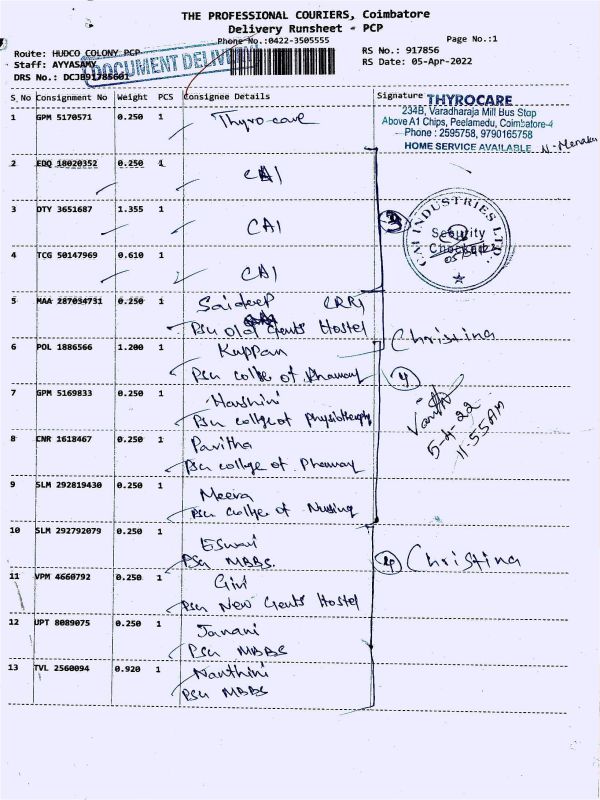 THE PROFESSIONAL COURIERS, Coimbatore
Delivery Runsheet - PCP
Phone No.:0422-3505555
Page No.:1
Route: HUDCO COLONY PCP
RS No.: 917856
Staff: AYYASAMY
RS Date: 05-Apr-2022
DOCUMENT DELIVERY
DRS No.: DCJB91785601
S_No Consignment No Weight PCS Consignee Details Signature
THYROCARE
234B, Varadharaja Mill Bus Stop
Above A1 Chips, Peelamedu, Coimbatore-4
Phone : 2595758, 9790165758
HOME SERVICE AVAILABLE
1 GPM 5170571 0.250 1 Thyrocare
2 EDQ 18020352 0.250 1 CAI
3 DTY 3651687 1.355 1 CAI
INDUSTRIES LTD.
Security
Checked
4 TCG 50147969 0.610 1 CAI
5 MAA 287034731 0.250 1 Saideep CRRI
PSG Old Gents Hostel
Christina
6 POL 1886566 1.200 1 Kuppan
PSG college of Pharmacy
4
7 GPM 5169833 0.250 1 Harshini
PSG college of Physiotherapy
5-4-22
11-55AM
8 CNR 1618467 0.250 1 Pavitha
PSG college of Pharmacy
9 SLM 292819430 0.250 1 Meera
PSG College of Nursing
10 SLM 292792079 0.250 1 Eswari
PSG MBBS
4 Christina
11 VPM 4660792 0.250 1 Giri
PSG New Gents Hostel
12 UPT 8089075 0.250 1 Janani
PSG MBBS
13 TVL 2560094 0.920 1 Nanthini
PSG MBBS